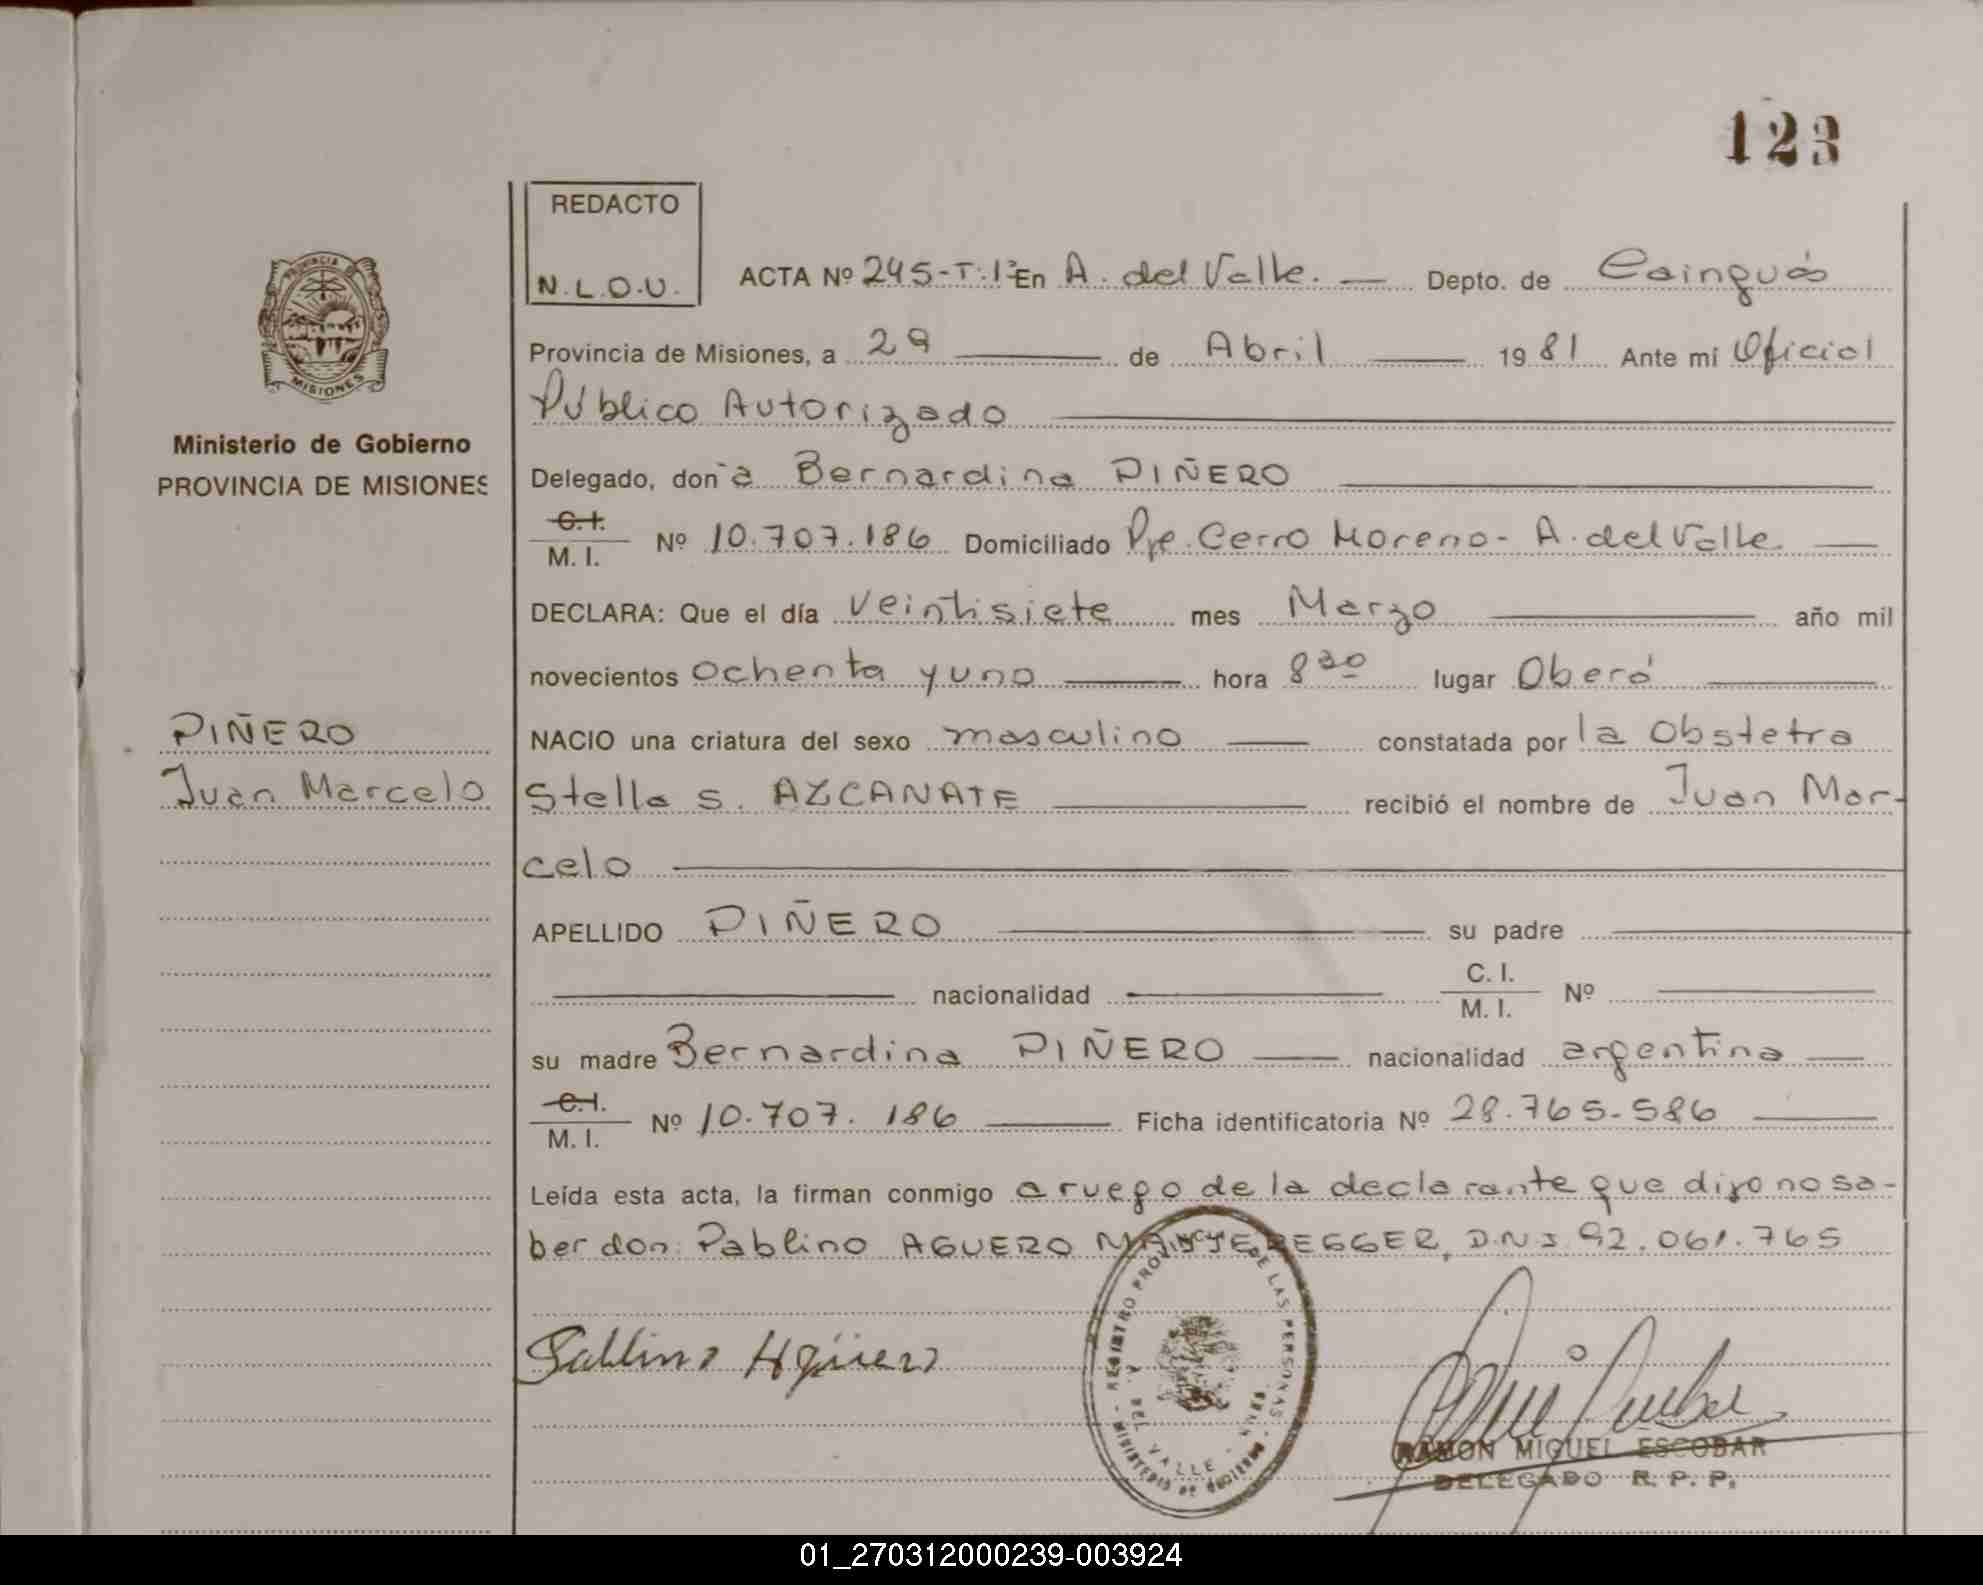 123
REDACTO
N.L.O.U.
ACTA Nº 245-T:1º En A. del Valle. Depto. de Cainguás
Provincia de Misiones, a 29 de Abril 1981 Ante mi Oficial
Público Autorizado
Delegado, don a Bernardina PIÑERO
C.I.
M. I. Nº 10.707.186 Domiciliado Pje. Cerro Moreno - A. del Valle
DECLARA: Que el día veintisiete mes Marzo año mil
novecientos ochenta y uno hora 8 30 lugar Oberá
NACIO una criatura del sexo masculino constatada por la Obstetra
Stella S. AZCANATE recibió el nombre de Juan Mar-
celo
APELLIDO PIÑERO su padre
nacionalidad C. I.
M. I. Nº
su madre Bernardina PIÑERO nacionalidad argentina
C.I.
M. I. Nº 10.707.186 Ficha identificatoria Nº 28.765.586
Leída esta acta, la firman conmigo a ruego de la declarante que dijo no sa-
ber don: Pablino AGUERO D.N.I. 92.061.765
Pablino Agüero
REGISTRO PROVINCIAL DE LAS PERSONAS
A. DEL VALLE
MINISTERIO DE GOBIERNO
RAMON MIGUEL ESCOBAR
DELEGADO R. P. P.
PROVINCIA DE
MISIONES
Ministerio de Gobierno
PROVINCIA DE MISIONES
PIÑERO
Juan Marcelo
01_270312000239-003924